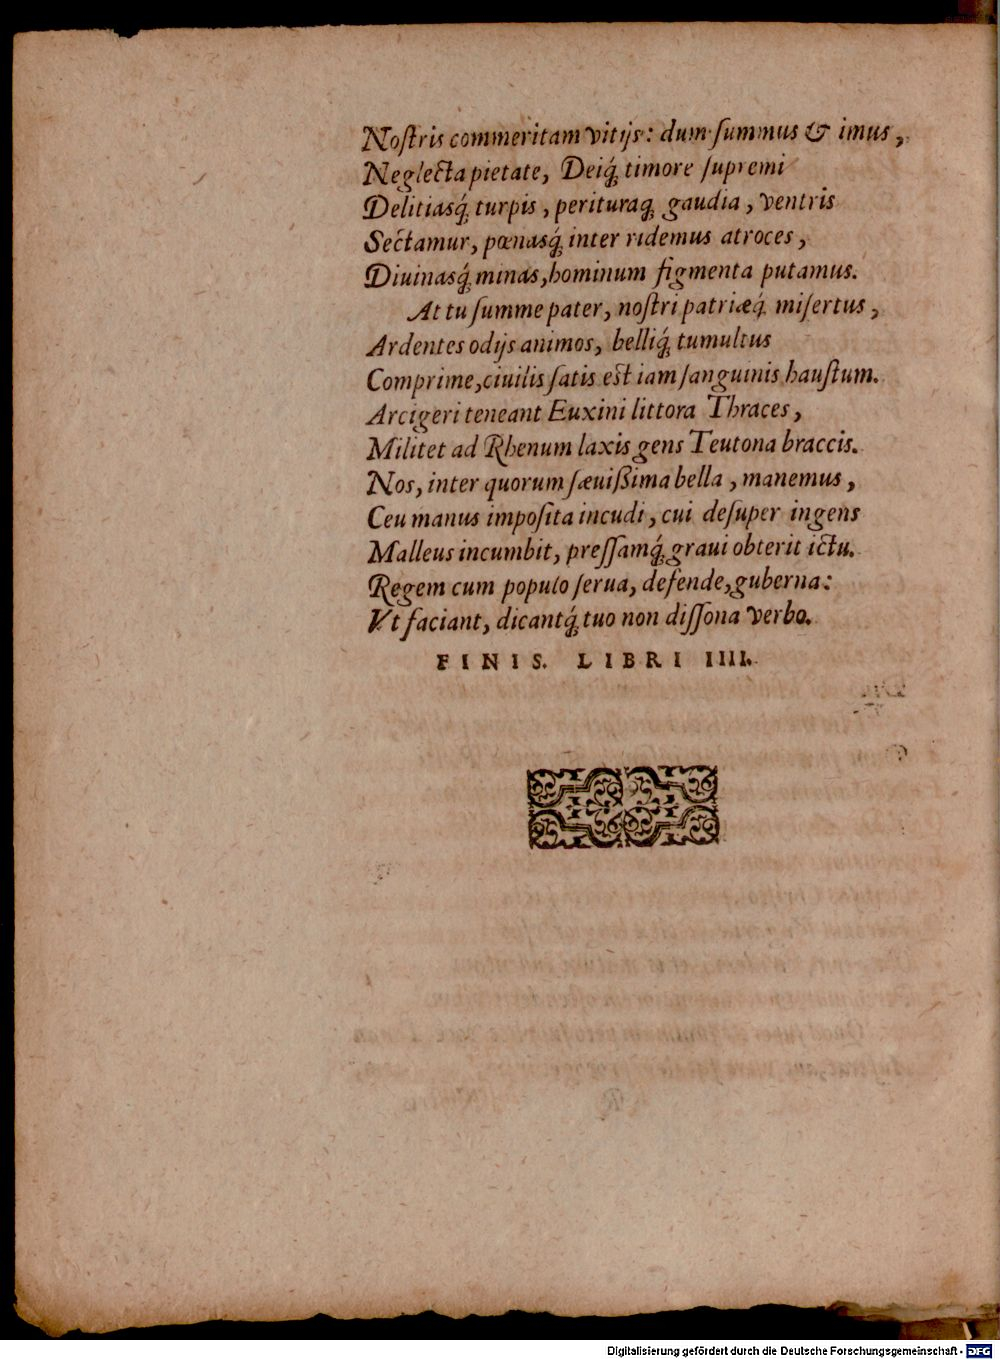 Noſtris commeritam vitijs: dum ſummus & imus,
Neglecta pietate, Deiq́; timore ſupremi
Delitiasq́; turpis, perituraq; gaudia, ventris
Sectamur, pœnasq́; inter ridemus atroces,
Diuinasq́; minas, hominum figmenta putamus.
At tu ſumme pater, noſtri patriæq́; miſertus,
Ardentes odijs animos, belliq́; tumultus
Comprime, ciuilis ſatis eſt iam ſanguinis hauſtum.
Arcigeri teneant Euxini littora Thraces,
Militet ad Rhenum laxis gens Teutona braccis.
Nos, inter quorum ſæuißima bella, manemus,
Ceu manus impoſita incudi, cui deſuper ingens
Malleus incumbit, preſſamq́; graui obterit ictu.
Regem cum populo ſerua, defende, guberna:
Vt faciant, dicantq́; tuo non diſſona verbo.
FINIS. LIBRI IIII.
Digitalisierung gefördert durch die Deutsche Forschungsgemeinschaft - DFG